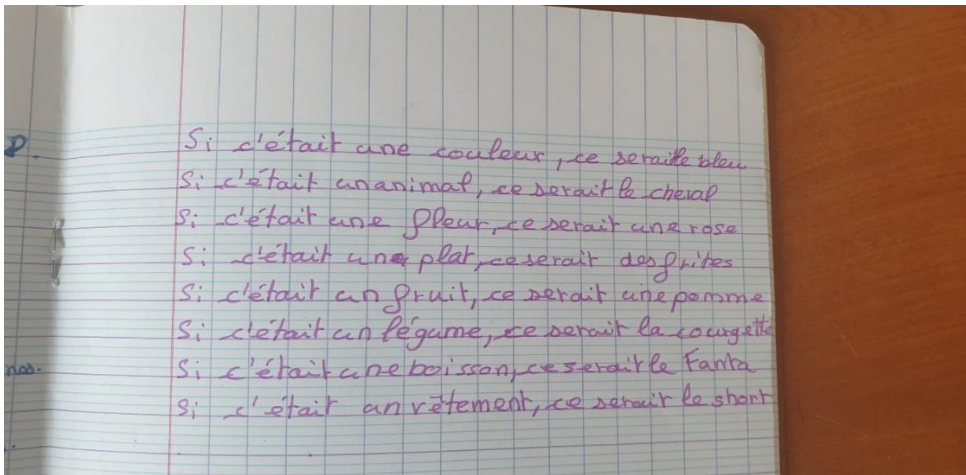 P.
Si c'était une couleur, ce serait le bleu
Si c'était un animal, ce serait le cheval
Si c'était une fleur, ce serait une rose
Si c'était un plat, ce serait des frites
Si c'était un fruit, ce serait une pomme
Si c'était un légume, ce serait la courgette
nos.
Si c'était une boisson, ce serait le Fanta
Si c'était un vêtement, ce serait le short